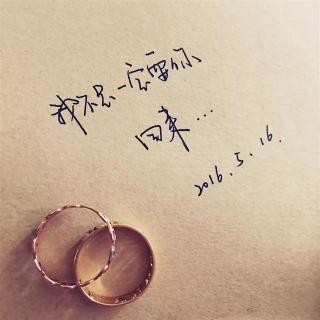 我不是一定要你
回来...
2016.5.16.